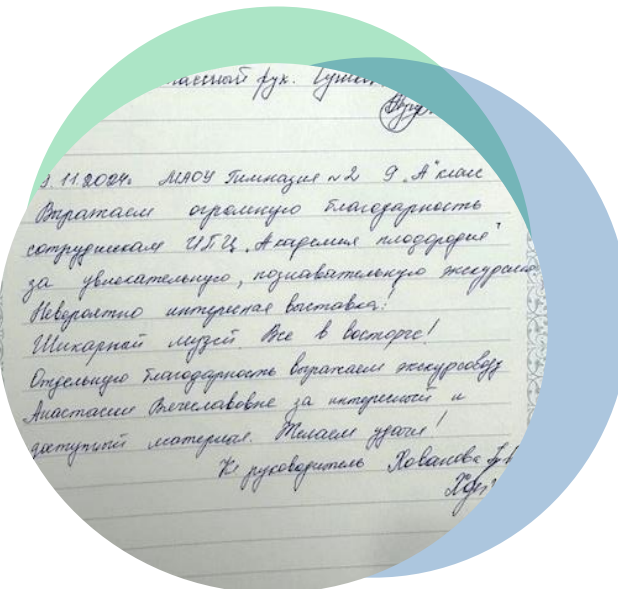 рук.
.11.2024г МАОУ Гимназия №2 9 „А" класс
Выражаем огромную благодарность
сотрудникам ИПЦ „Академия плодородия"
за увлекательную, познавательную экскурсию
Невероятно интересная выставка!
Шикарный музей. Все в восторге!
Отдельную благодарность выражаем экскурсоводу
Анастасии Вячеславовне за интересный и
доступный материал. Желаем удачи!
Кл руководитель Хованова